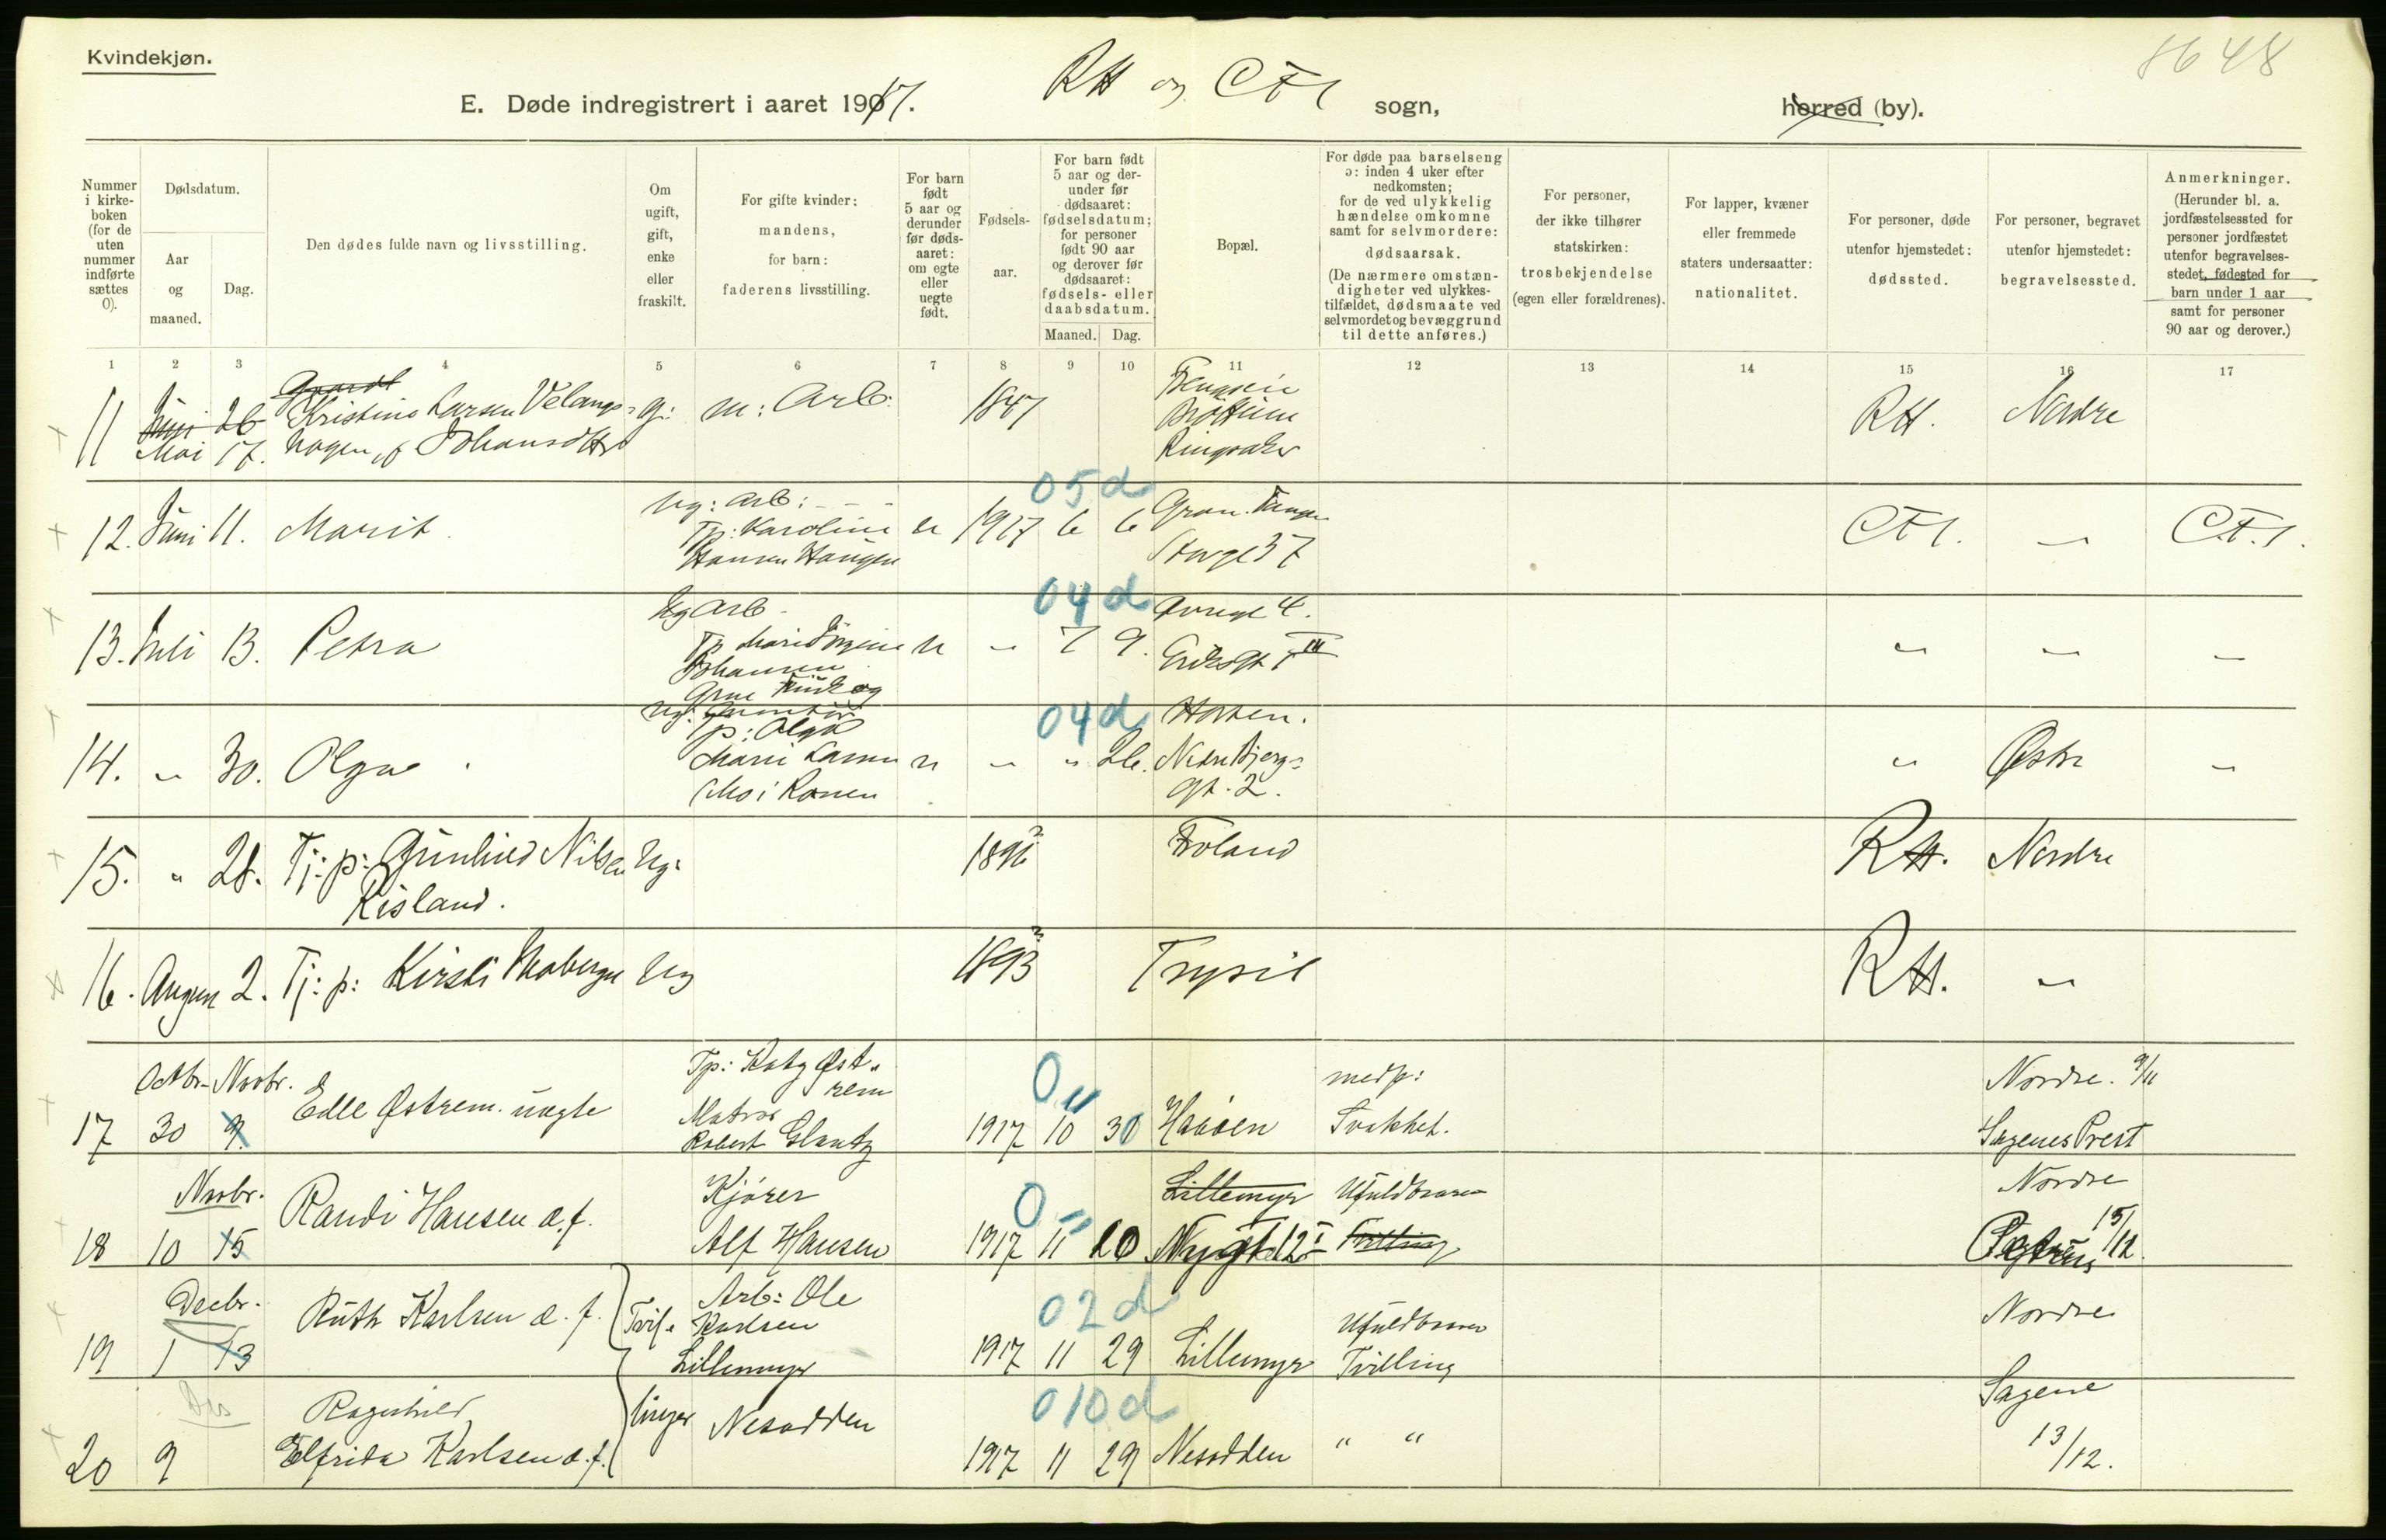 Kvindekjøn.
8648
E. Døde indregistrert i aaret 1917. RH og CF1 sogn, herred (by).
Nummer i kirkeboken (for de uten nummer indførte sættes 0).
Dødsdatum.
Aar og maaned.
Dag.
Den dødes fulde navn og livsstilling.
Om ugift, gift, enke eller fraskilt.
For gifte kvinder: mandens, for barn: faderens livsstilling.
For barn født 5 aar og derunder før dødsaaret: om egte eller uegte født.
Fødsels-aar.
For barn født 5 aar og derunder før dødsaaret: fødselsdatum; for personer født 90 aar og derover før dødsaaret: fødsels- eller daabsdatum.
Maaned. Dag.
Bopæl.
For døde paa barselseng ɔ: inden 4 uker efter nedkomsten; for de ved ulykkelig hændelse omkomne samt for selvmordere: dødsaarsak.
(De nærmere omstændigheter ved ulykkestilfældet, dødsmaate ved selvmordet og bevæggrund til dette anføres.)
For personer, der ikke tilhører statskirken: trosbekjendelse (egen eller forældrenes).
For lapper, kvæner eller fremmede staters undersaatter: nationalitet.
For personer, døde utenfor hjemstedet: dødssted.
For personer, begravet utenfor hjemstedet: begravelsessted.
Anmerkninger.
(Herunder bl. a. jordfæstelsessted for personer jordfæstet utenfor begravelsesstedet, fødested for barn under 1 aar samt for personer 90 aar og derover.)
1 2 3 4 5 6 7 8 9 10 11 12 13 14 15 16 17
11 Juni 26 Mai 17. Kristine Larsen Velangs-hagen, f Johansdtr g: m: Arb: 1847 Brøttum Ringsaker RH. Nordre
05 d
12. Juni 11. Marit Ug: Arb: Tp: Karoline Hansen Haugen u 1917 6 6 Gran. Storgt 37 CF1. " CF.1.
04 d
13. Juli 13. Petra Ug Arb Tp Marie Jørgine Johansen u " 7 9. " " "
04 d
14. " 30. Olga Ug: Tp: Olga Marie Larsen u " " 26. Nedre Bjerg= gt. 2. " Østre "
15. " 28. Tj: p: Gunhild Nilsen Risland. Ug: 1896 Froland RH. Nordre
16. August 2. Tj: p: Kirsti Moberget Ug 1893 Trysil RH. "
Octbr. Novbr.
17 30 9. Edle Østrem. uægte Tp: Katy Østrem Matros Robert Glantz 1917 10 30 0 " medf: Svakhet. Nordre. 9/11 Sagenes Prest
Novbr.
18 10 15 Randi Hansen æ.f. Kjører Alf Hansen 1917 11 10 0 " Lillemyr Nygt 12 I Ufuldbaaren Tvilling Nordre 15/12.
Decbr.
19 1 13 Ruth Karlsen æ. f. Tvil- Arb: Ole Karlsen Lillemyr 02 d 1917 11 29 Lillemyr Ufuldbaaren Tvilling Nordre
Des
20 9 Ragnhild Elfrida Karlsen æ.f. linger Nesodden 010 d 1917 11 29 Nesodden " " Sagene 13/12.